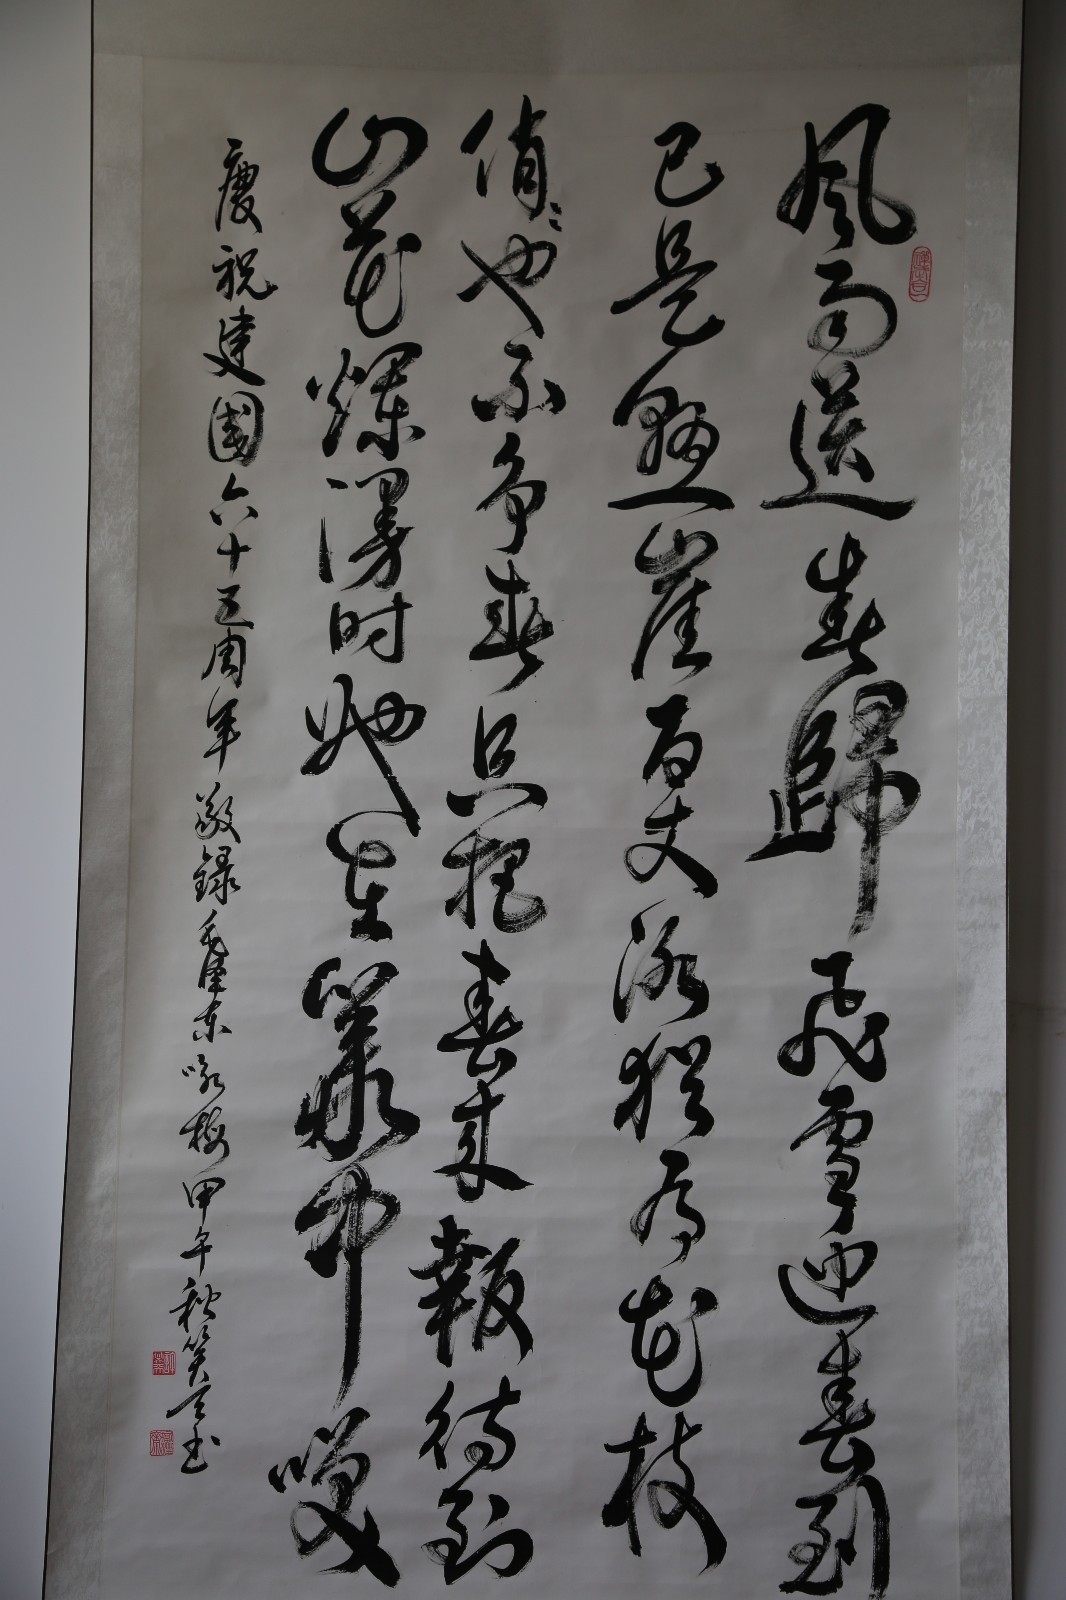 風雨送春歸飛雪迎春到
已是懸崖百丈冰猶有花枝
俏〻也不争春只把春来報待到
山花爛漫时她在叢中咲
慶祝建國六十五周年敬録毛澤東咏梅甲午秋笑天书